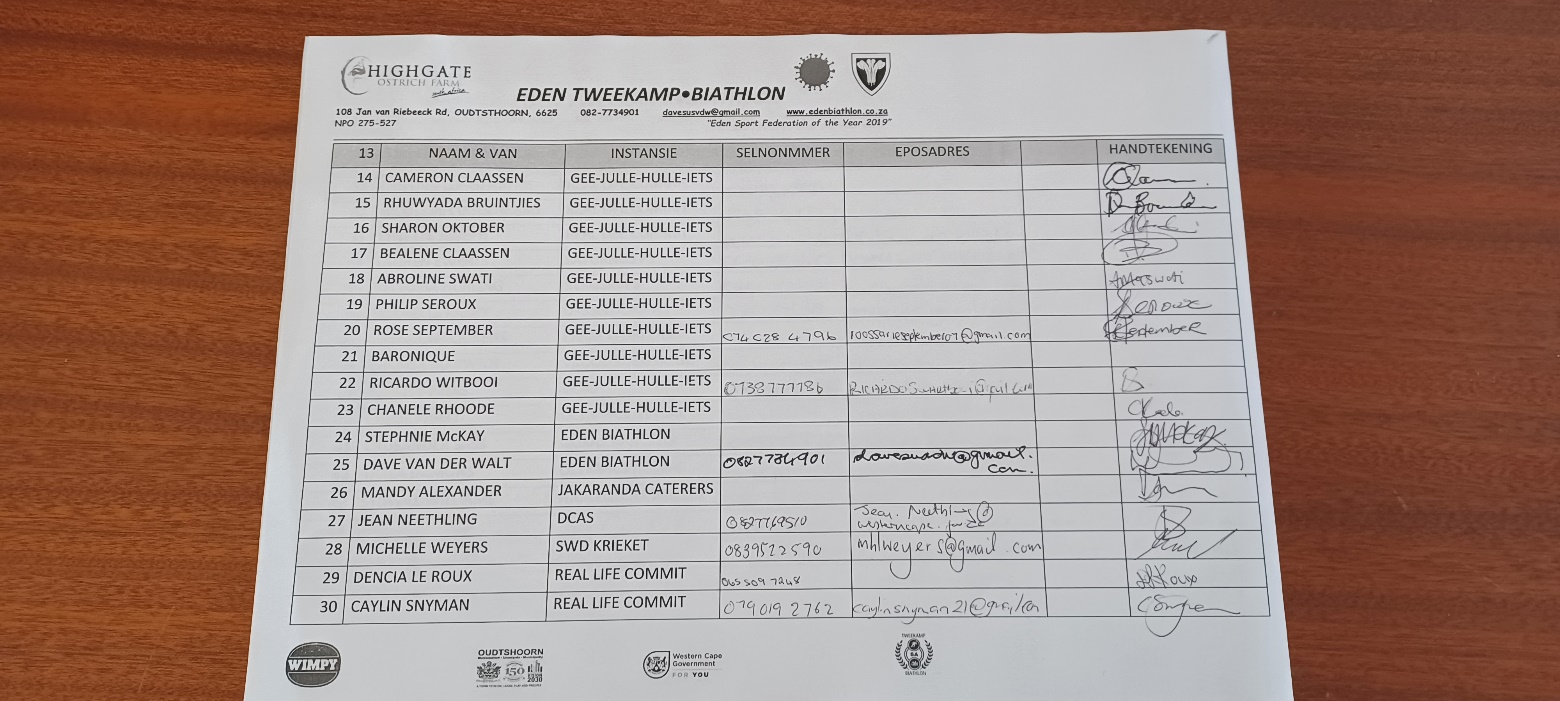 HIGHGATE
OSTRICH FARM
south africa
EDEN TWEEKAMP•BIATHLON
108 Jan van Riebeeck Rd, OUDTSHOORN, 6625 082-7734901 davesusvdw@gmail.com www.edenbiathlon.co.za
NPO 275-527 "Eden Sport Federation of the Year 2019"
13 NAAM & VAN INSTANSIE SELNONMMER EPOSADRES HANDTEKENING
14 CAMERON CLAASSEN GEE-JULLE-HULLE-IETS
15 RHUWYADA BRUINTJIES GEE-JULLE-HULLE-IETS
16 SHARON OKTOBER GEE-JULLE-HULLE-IETS
17 BEALENE CLAASSEN GEE-JULLE-HULLE-IETS
18 ABROLINE SWATI GEE-JULLE-HULLE-IETS
19 PHILIP SEROUX GEE-JULLE-HULLE-IETS Seroux
20 ROSE SEPTEMBER GEE-JULLE-HULLE-IETS 074 028 4796 September
21 BARONIQUE GEE-JULLE-HULLE-IETS
22 RICARDO WITBOOI GEE-JULLE-HULLE-IETS 0738777786
23 CHANELE RHOODE GEE-JULLE-HULLE-IETS
24 STEPHNIE McKAY EDEN BIATHLON
25 DAVE VAN DER WALT EDEN BIATHLON 0827734901
26 MANDY ALEXANDER JAKARANDA CATERERS
27 JEAN NEETHLING DCAS 0827769510
28 MICHELLE WEYERS SWD KRIEKET 0839522590 mhlweyers@gmail.com
29 DENCIA LE ROUX REAL LIFE COMMIT 065 509 7248
30 CAYLIN SNYMAN REAL LIFE COMMIT 079 019 2762 caylinsnyman21@gmail.com
WIMPY
OUDTSHOORN
150
2030
Western Cape
Government
FOR YOU
TWEEKAMP
SA
BIATHLON